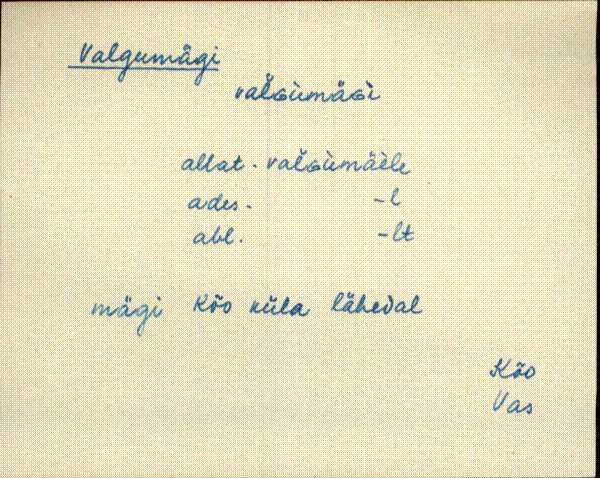 Valgumägi
val̆ɢumäɢi
allat. val̆ɢumäèle
ades. -l
abl. -lt
mägi Kõo küla lähedal
Kõo
Vas